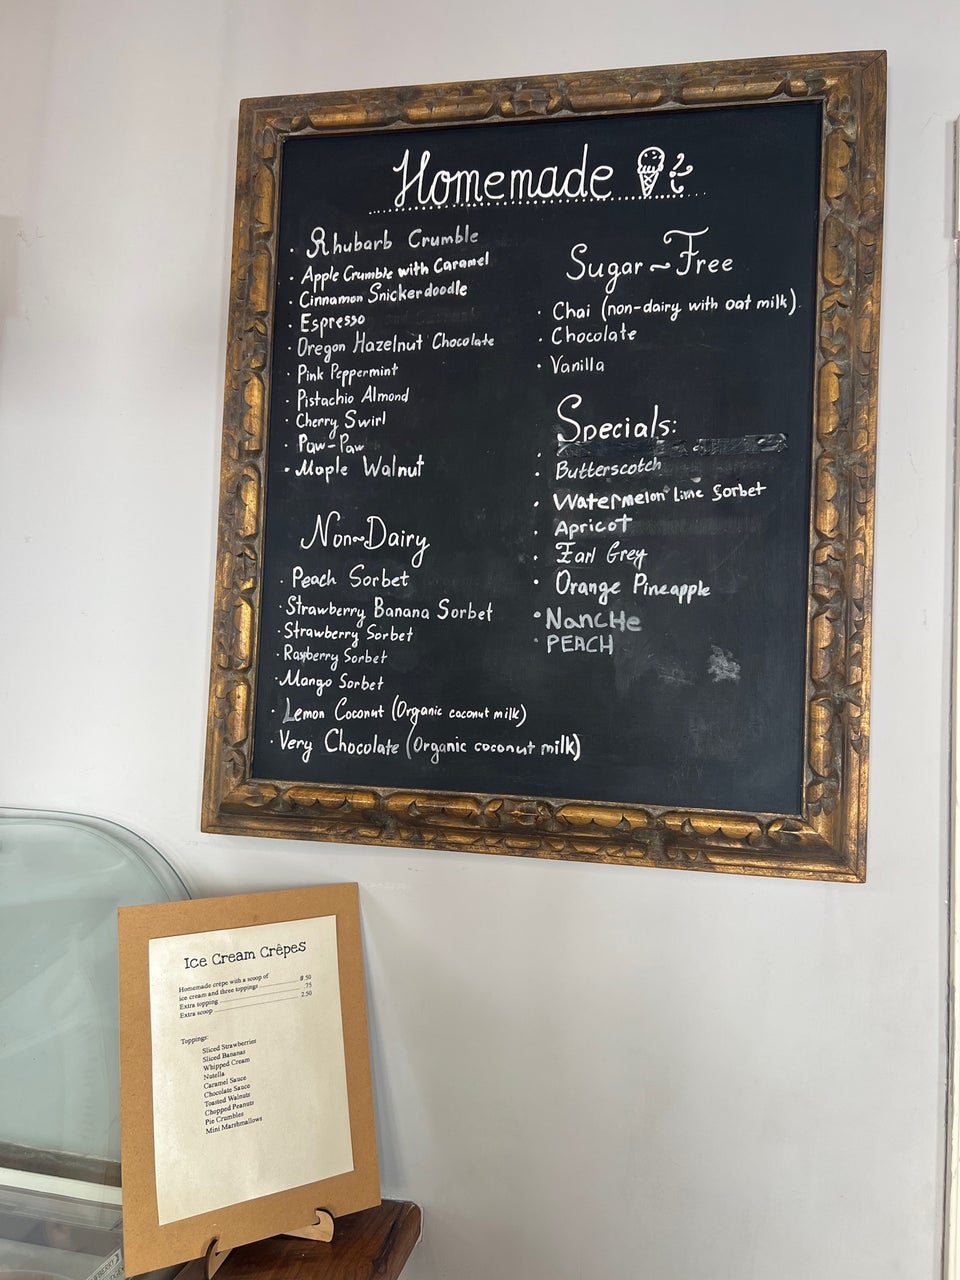 Homemade
· Rhubarb Crumble
· Apple Crumble with Caramel
· Cinnamon Snickerdoodle
· Espresso
· Oregon Hazelnut Chocolate
· Pink Peppermint
· Pistachio Almond
· Cherry Swirl
· Paw-Paw
· Maple Walnut
Non~Dairy
· Peach Sorbet
· Strawberry Banana Sorbet
· Strawberry Sorbet
· Raspberry Sorbet
· Mango Sorbet
· Lemon Coconut (Organic coconut milk)
· Very Chocolate (Organic coconut milk)
Sugar~Free
· Chai (non-dairy with oat milk)
· Chocolate
· Vanilla
Specials:
· Butterscotch
· Watermelon Lime Sorbet
· Apricot
· Earl Grey
· Orange Pineapple
· NancHe
· PEACH
Ice Cream Crêpes
Homemade crêpe with a scoop of
ice cream and three toppings 8.50
Extra topping .75
Extra scoop 2.50
Toppings:
Sliced Strawberries
Sliced Bananas
Whipped Cream
Nutella
Caramel Sauce
Chocolate Sauce
Toasted Walnuts
Chopped Peanuts
Pie Crumbles
Mini Marshmallows